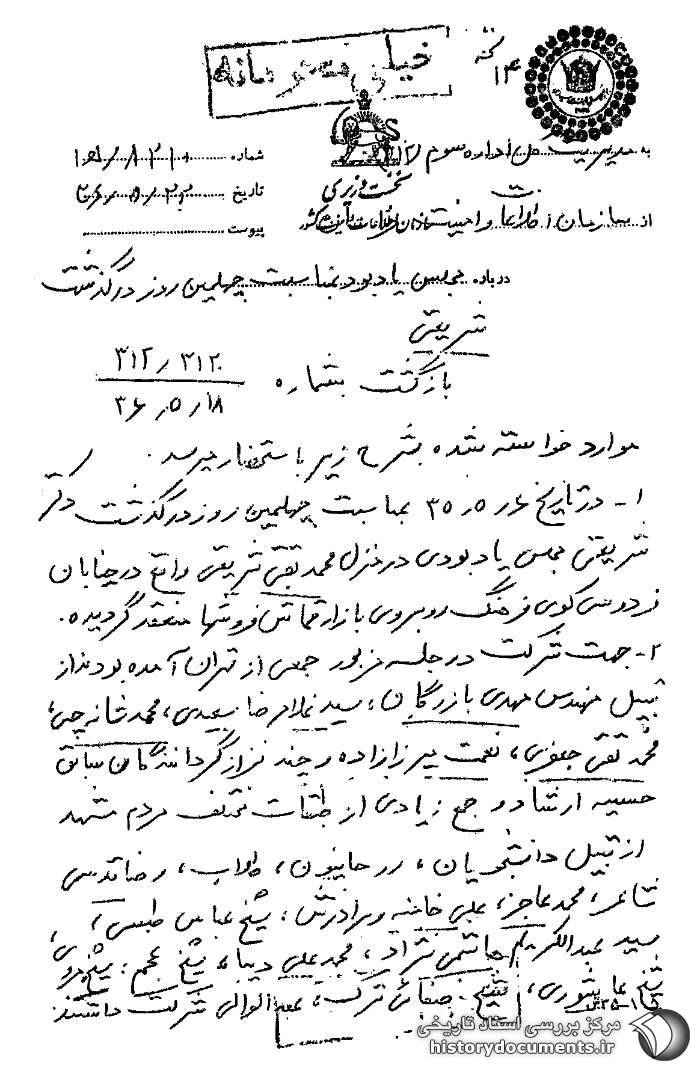 خیلی محرمانه
به مدیریت کل اداره سوم ۳۱۲
شماره ۱۰۲۱۰/۸ه‍۱
نخست وزیری
تاریخ ۲۲/۵/۳۶
از سازمان اطلاعات و امنیت
سازمان اطلاعات و امنیت کشور
پیوست
درباره مجلس یادبود بمناسبت چهلمین روز درگذشت
شریعتی
بازگشت بشماره ۳۱۲/۳۱۲۰
۳۶/۵/۱۸
موارد خواسته شده بشرح زیر باستحضار میرسد.
۱- در تاریخ ۳۵/۵/۶ بمناسبت چهلمین روز درگذشت دکتر
شریعتی مجلس یادبودی در منزل محمد تقی شریعتی واقع در خیابان
فردوسی کوی فرهنگ روبروی بازار قماش فروشها منعقد گردیده.
۲- جهت شرکت در جلسه مزبور جمعی از تهران آمده بودند از
قبیل مهندس مهدی بازرگان، سید غلامرضا سعیدی، محمد شانه چی،
محمد تقی جعفری، نعمت میرزازاده و چند نفر از گردانندگان سابق
حسینیه ارشاد و جمع زیادی از طبقات مختلف مردم مشهد
از قبیل دانشجویان، روحانیون، طلاب، رضا قدسی
شاعر، محمد عاجز، علی خامنه و برادرش، شیخ عباس طبسی،
سید عبدالکریم هاشمی نژاد، محمد علی دیبا، شیخ عجم،
شیخ عاشوری، شیخ صفائی ترک، شرکت داشتند
مرکز بررسی اسناد تاریخی
historydocuments.ir